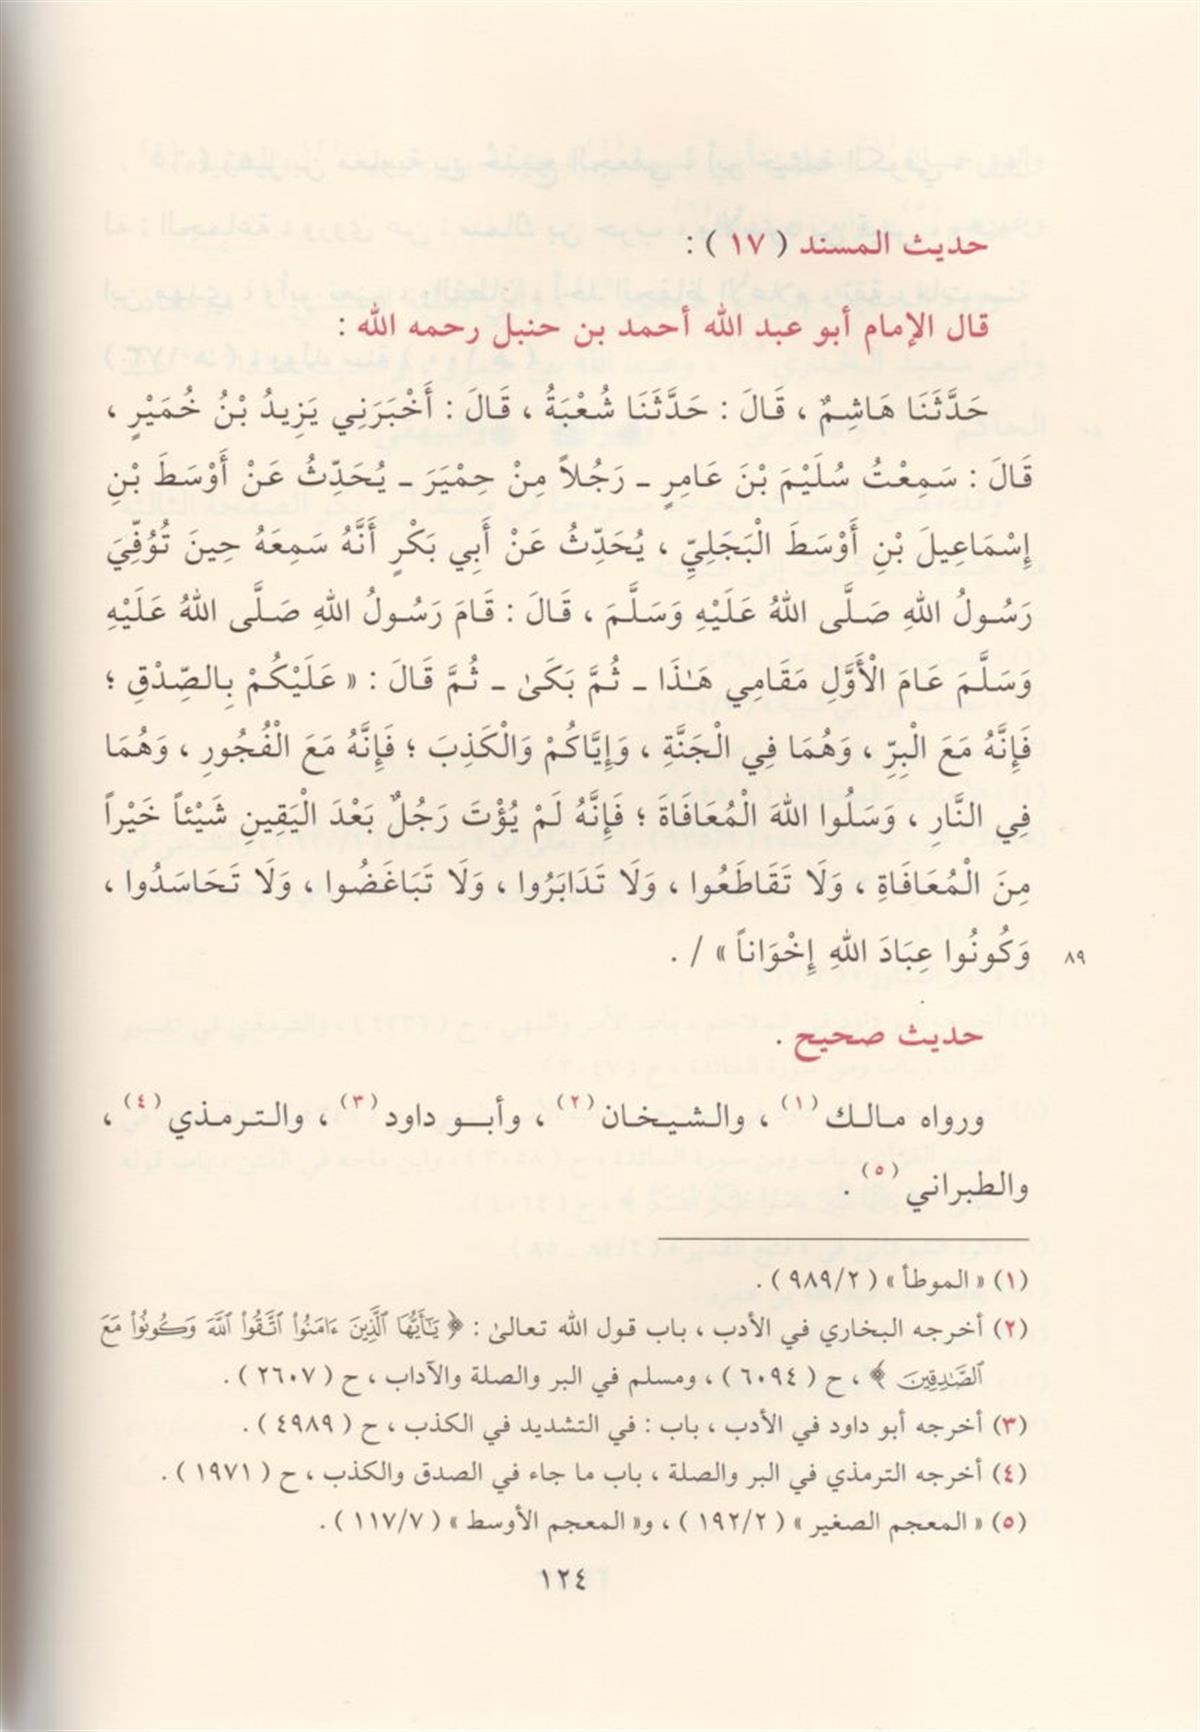 حديث المسند ( ١٧ ) :
قال الإمام أبو عبد الله أحمد بن حنبل رحمه الله :
حَدَّثَنَا هَاشِمٌ ، قَالَ : حَدَّثَنَا شُعْبَةُ ، قَالَ : أَخْبَرَنِي يَزِيدُ بْنُ خُمَيْرٍ ،
قَالَ : سَمِعْتُ سُلَيْمَ بْنَ عَامِرٍ ـ رَجُلاً مِنْ حِمْيَرَ ـ يُحَدِّثُ عَنْ أَوْسَطَ بْنِ
إِسْمَاعِيلَ بْنِ أَوْسَطَ الْبَجَلِيِّ ، يُحَدِّثُ عَنْ أَبِي بَكْرٍ أَنَّهُ سَمِعَهُ حِينَ تُوُفِّيَ
رَسُولُ اللهِ صَلَّى اللهُ عَلَيْهِ وَسَلَّمَ ، قَالَ : قَامَ رَسُولُ اللهِ صَلَّى اللهُ عَلَيْهِ
وَسَلَّمَ عَامَ الْأَوَّلِ مَقَامِي هَـٰذَا ـ ثُمَّ بَكَىٰ ـ ثُمَّ قَالَ : « عَلَيْكُمْ بِالصِّدْقِ ؛
فَإِنَّهُ مَعَ الْبِرِّ ، وَهُمَا فِي الْجَنَّةِ ، وَإِيَّاكُمْ وَالْكَذِبَ ؛ فَإِنَّهُ مَعَ الْفُجُورِ ، وَهُمَا
فِي النَّارِ ، وَسَلُوا اللهَ الْمُعَافَاةَ ؛ فَإِنَّهُ لَمْ يُؤْتَ رَجُلٌ بَعْدَ الْيَقِينِ شَيْئاً خَيْراً
مِنَ الْمُعَافَاةِ ، وَلَا تَقَاطَعُوا ، وَلَا تَدَابَرُوا ، وَلَا تَبَاغَضُوا ، وَلَا تَحَاسَدُوا ،
٨٩ وَكُونُوا عِبَادَ اللهِ إِخْوَاناً » / .
حديث صحيح .
ورواه مالك (١) ، والشيخان (٢) ، وأبو داود (٣) ، والترمذي (٤) ،
والطبراني (٥) .
(١) « الموطأ » ( ٩٨٩/٢ ) .
(٢) أخرجه البخاري في الأدب ، باب قول الله تعالىٰ : ﴿ يَـٰٓأَيُّهَا ٱلَّذِينَ ءَامَنُوا۟ ٱتَّقُوا۟ ٱللَّهَ وَكُونُوا۟ مَعَ
ٱلصَّـٰدِقِينَ ﴾ ، ح ( ٦٠٩٤ ) ، ومسلم في البر والصلة والآداب ، ح ( ٢٦٠٧ ) .
(٣) أخرجه أبو داود في الأدب ، باب : في التشديد في الكذب ، ح ( ٤٩٨٩ ) .
(٤) أخرجه الترمذي في البر والصلة ، باب ما جاء في الصدق والكذب ، ح ( ١٩٧١ ) .
(٥) « المعجم الصغير » ( ١٩٢/٢ ) ، و« المعجم الأوسط » ( ١١٧/٧ ) .
١٢٤